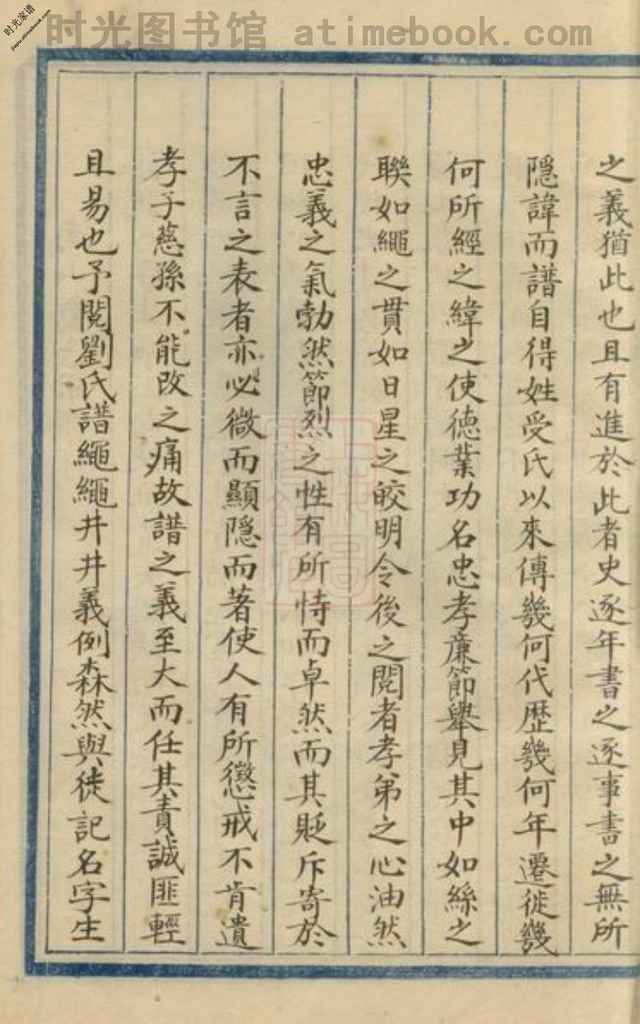 时光图书馆 atimebook.com
时光家谱
之義猶此也且有進於此者史逐年書之逐事書之無所
隱諱而譜自得姓受氏以來傳幾何代歷幾何年遷徙幾
何所經之緯之使德業功名忠孝廉節舉見其中如絲之
聯如繩之貫如日星之皎明令後之閱者孝弟之心油然
忠義之氣勃然節烈之性有所恃而卓然而其貶斥寄於
不言之表者亦必微而顯隱而著使人有所懲戒不肯遺
孝子慈孫不能改之痛故譜之義至大而任其責誠匪輕
且易也予閱劉氏譜繩繩井井義例森然與徒記名字生